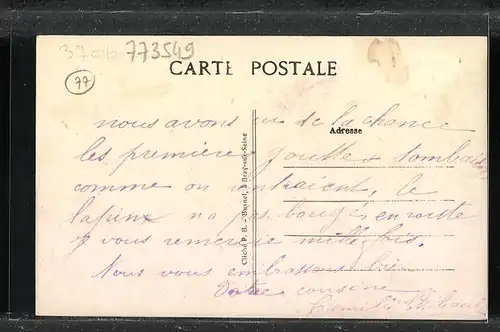 3706 773549
77
CARTE POSTALE
Adresse
Cliché P. B. - Besnel, à Bray-sur-Seine
nous avons eu de la chance
les premières gouttes tombaient
comme on rentraient, le
lapin n'a pas bougé en route
je vous remercie mille fois.
Nous vous embrassons bien
Votre cousine